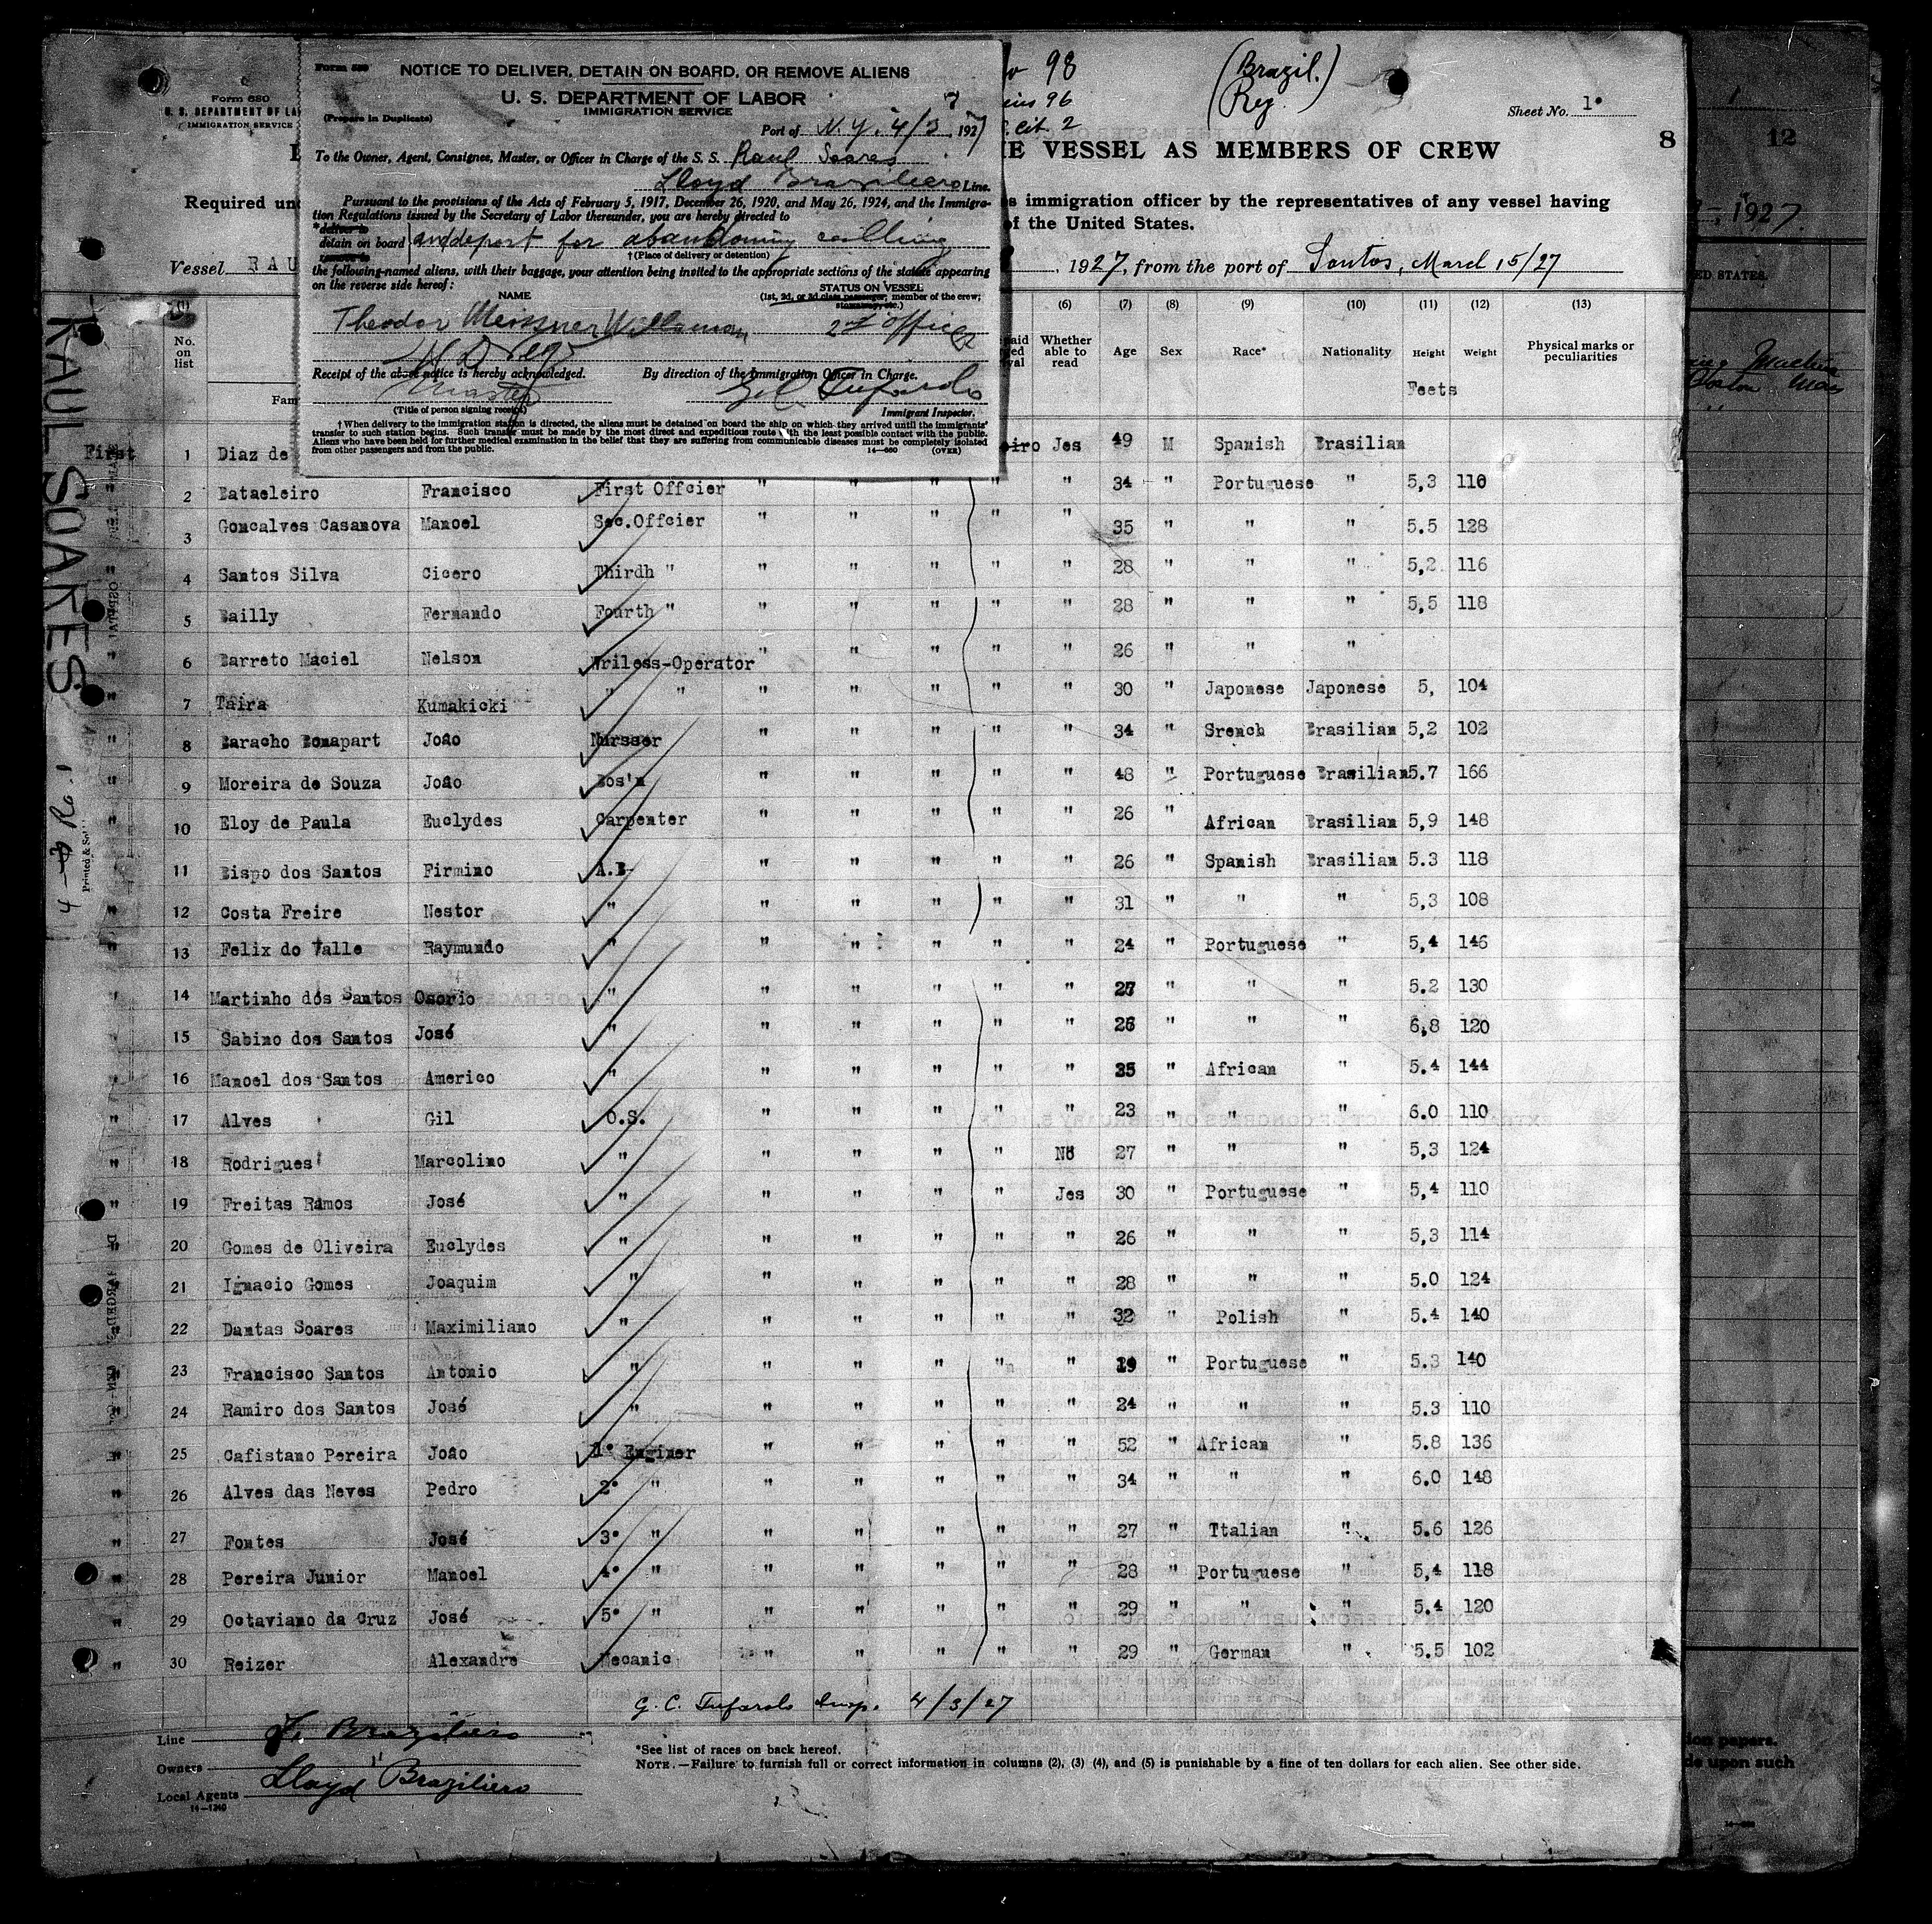 Form 680
U. S. DEPARTMENT OF LA
IMMIGRATION SERVICE
Form 680
NOTICE TO DELIVER, DETAIN ON BOARD, OR REMOVE ALIENS
U. S. DEPARTMENT OF LABOR
IMMIGRATION SERVICE
(Prepare in Duplicate)
Port of N.Y. 4/3, 1927
To the Owner, Agent, Consignee, Master, or Officer in Charge of the S. S. Raul Soares
Lloyd Braziliero Line.
Pursuant to the provisions of the Acts of February 5, 1917, December 26, 1920, and May 26, 1924, and the Immigra-
tion Regulations issued by the Secretary of Labor thereunder, you are hereby directed to
*deliver to
detain on board and deport for abandoning calling
remove to
†(Place of delivery or detention)
the following-named aliens, with their baggage, your attention being invited to the appropriate sections of the statute appearing
on the reverse side hereof:
NAME
STATUS ON VESSEL
(1st, 2d, or 3d class passenger; member of the crew;
stowaway, etc.)
Theodor Meissner 2d office
Receipt of the above notice is hereby acknowledged.
By direction of the Immigration Officer in Charge.
Master G.C. Tufarolo
(Title of person signing receipt)
Immigrant Inspector.
†When delivery to the immigration station is directed, the aliens must be detained on board the ship on which they arrived until the immigrants'
transfer to such station begins. Such transfer must be made by the most direct and expeditious route with the least possible contact with the public.
Aliens who have been held for further medical examination in the belief that they are suffering from communicable diseases must be completely isolated
from other passengers and from the public.
14—680 (OVER)
98
96
cit. 2
(Brazil.)
(Reg.)
Sheet No. 1.
E VESSEL AS MEMBERS OF CREW
8
12
1927.
Required un
s immigration officer by the representatives of any vessel having
of the United States.
Vessel RAU
, 1927, from the port of Santos, March 15/27
ED STATES.
RAUL SOARES
(1) (6) (7) (8) (9) (10) (11) (12) (13)
No. on list
Fam
Whether able to read
Age
Sex
Race*
Nationality
Height
Weight
Physical marks or peculiarities
Feets
First 1 Diaz de eiro Jes 49 M Spanish Brasilian
2 Bataeleiro Francisco First Offcier " " " " " 34 " Portuguese " 5,3 110
" 3 Goncalves Casanova Manoel Sec.Offcier " " " " " 35 " " " 5.5 128
" 4 Santos Silva Cicero Thirdh " " " " " " 28 " " " 5,2 116
" 5 Bailly Fernando Fourth " " " " " " 28 " " " 5,5 118
" 6 Barreto Maciel Nelson Wriless-Operator " " " " " 26 " " "
" 7 Taira Kumakicki " " " " " " " 30 " Japonese Japonese 5, 104
" 8 Baracho Bonapart João Nursser " " " " " 34 " Srench Brasilian 5,2 102
" 9 Moreira de Souza João Bos'n " " " " " 48 " Portuguese Brasilian 5.7 166
" 10 Eloy de Paula Euclydes Carpenter " " " " " 26 " African Brasilian 5,9 148
" 11 Bispo dos Santos Firmino A.B " " " " " 26 " Spanish Brasilian 5.3 118
" 12 Costa Freire Nestor " " " " " " 31 " " " 5,3 108
" 13 Felix do Valle Raymundo " " " " " " 24 " Portuguese " 5,4 146
" 14 Martinho dos Santos Osorio " " " " " " 27 " " " 5.2 130
" 15 Sabino dos Santos José " " " " " " 26 " " " 6,8 120
" 16 Manoel dos Santos Americo " " " " " " 35 " African " 5.4 144
" 17 Alves Gil O.S. " " " " " 23 " " " 6.0 110
" 18 Rodrigues Marcolino " " " " " No 27 " " " 5,3 124
" 19 Freitas Ramos José " " " " " Jes 30 " Portuguese " 5,4 110
" 20 Gomes de Oliveira Euclydes " " " " " " 26 " " " 5,3 114
" 21 Ignacio Gomes Joaquim " " " " " " 28 " " " 5.0 124
" 22 Dantas Soares Maximiliano " " " " " " 32 " Polish " 5.4 140
" 23 Francisco Santos Antonio " " " " " " 19 " Portuguese " 5.3 140
" 24 Ramiro dos Santos José " " " " " " 24 " " " 5.3 110
" 25 Cafistano Pereira João 1° Enginer " " " " " 52 " African " 5.8 136
" 26 Alves das Neves Pedro 2° " " " " " " 34 " " " 6.0 148
" 27 Fontes José 3° " " " " " " 27 " Ttalian " 5.6 126
" 28 Pereira Junior Manoel 4° " " " " " " 28 " Portuguese " 5,4 118
" 29 Octaviano da Cruz José 5° " " " " " " 29 " " " 5.4 120
" 30 Reizer Alexandre Mecanic " " " " " 29 " German " 5.5 102
G. C. Tufarolo Insp. 4/3/27
Line Braziliero
Owners "
Local Agents Lloyd Braziliero
14—1240
*See list of races on back hereof.
NOTE.—Failure to furnish full or correct information in columns (2), (3) (4), and (5) is punishable by a fine of ten dollars for each alien. See other side.
ion papers.
de upon such